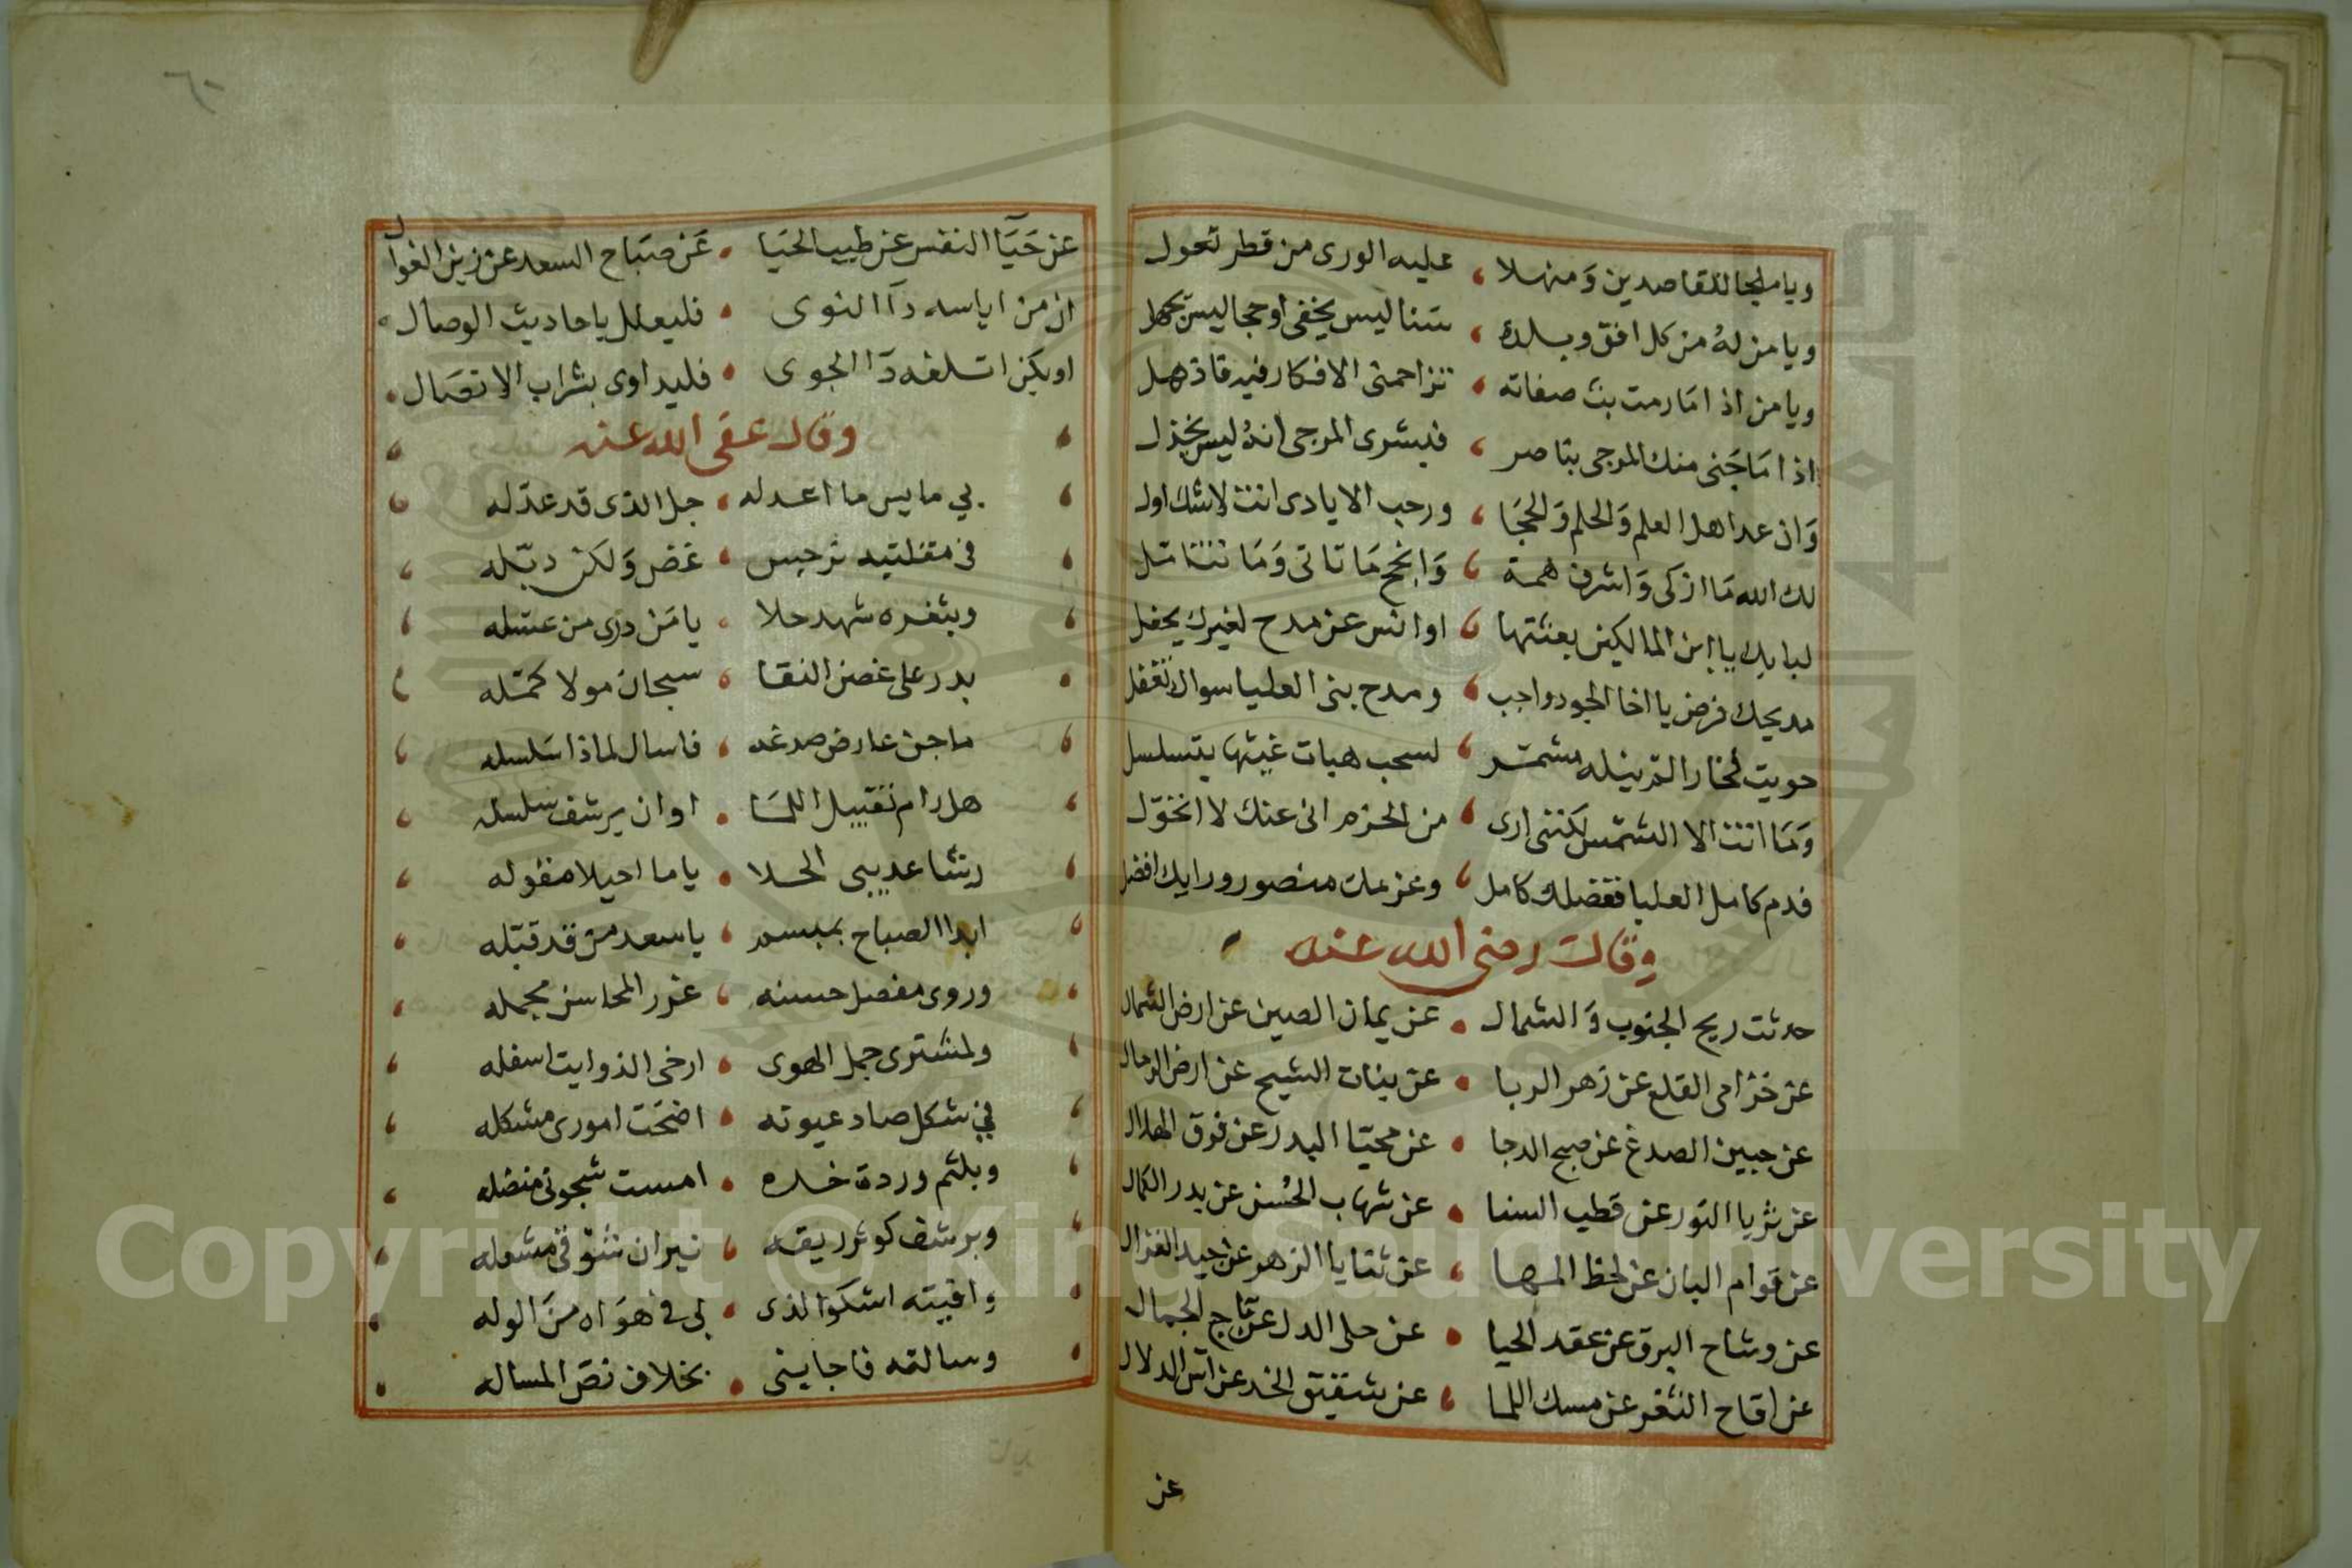 ويا ملجا للقاصدين وَمنهلا ، عليه الورى من قطر تعول
ويا من لهُ من كل افق وبلدة ، سنا ليس يخفى او حجا ليس يجهل
ويا من اذا امَا رمت بث صفاته ، تزاحمنى الافكار فيه فاذهل
اذا امَا جَنى منك المرجى بناصر ، فبشرى المرجى انهُ ليس يخذل
وَان عد اهل العلم وَالحلم وَالحجَا ، ورحب الايادى انت لاشك اول
لك الله مَا ازكى وَاشرف همة ، وَانجح مَا تاتى وَمَا تتناثل
لبابك يا ابن المالكين بعثتها ، اوانس عن مدح لغيرك يحفل
مديحك فرض يا اخا الجود واجب ، ومدح بنى العليا سواك تنفل
حويت فخارا لم ينله مشمّر ، لسحب هبات غيثها يتسلسل
وَمَا انت الا الشمس لكننى ارى ، من الحزم انى عنك لا اتحوّل
فدم كامل العليا ففضلك كامل ، وعزمك منصور ورايك افضل
وقال رضى الله عنه
حدثت ريح الجنوب وَالشمال . عن يمان الصين عن ارض الشمال
عن خزامى القلع عن زهر الربا . عن بنات الشيح عن ارض الرمال
عن جبين الصدغ عن صبح الدجا . عن محيّا البدر عن فوق الهلال
عن ثريا النور عن قطب السنا . عن شهاب الحُسن عن بدر الكمال
عن قوام البان عن لحظ المها ، عن ثنايا الزهر عن جيد الغزال
عن وشاح البرق عن عقد الحيا . عن حلى الدل عن تاج الجمال
عن اقاح الثغر عن مسك اللما ، عن شقيق الخد عن آس الدلال
عن
عن حَيَا النفس عن طيب الحَيا . عَن صبَاح السعد عن زين الغوال
ان من اياسه دآ النوى . فليعلل باحاديث الوصال
او يكن اتلفه دَا الجوى . فليداوى بشراب الاتصَال
وقال عفى الله عنه
بي مايس ما اعدله ، جل الذى قد عدّله
فى مقلتيه نرجس ، غض وَلكن دبّله
وبثغره شهد حلا ، يا مَن درى من عسّله
بدر على غصن النقا ، سبحان مولا كمّله
ما جن عارض صدغه ، فاسال لماذا سَلسله
هل رام تقبيل اللمَا . او ان يرشف سلسله
رشا عديبى الحلا . ياما احيلا مقوله
ابدا الصباح بمبسم ، يا سعد من قد قبّله
وروى مفصل حسنه ، غرر المحاسن مجمله
ولمشترى حمل الهوى . ارخى الذوايت اسفله
في شكل صاد عيونه . اضحَت امورى مشكله
وبلثم وردة خده . امست شجونى منضله
وبرشف كوثر ريقه ، نيران شوقى مشعله
وافيته اشكوا الذى . بى فى هوَاه منَ الوله
وسالته فاجابنى . بخلاف نصّ المساله
Copyright © King Saud University